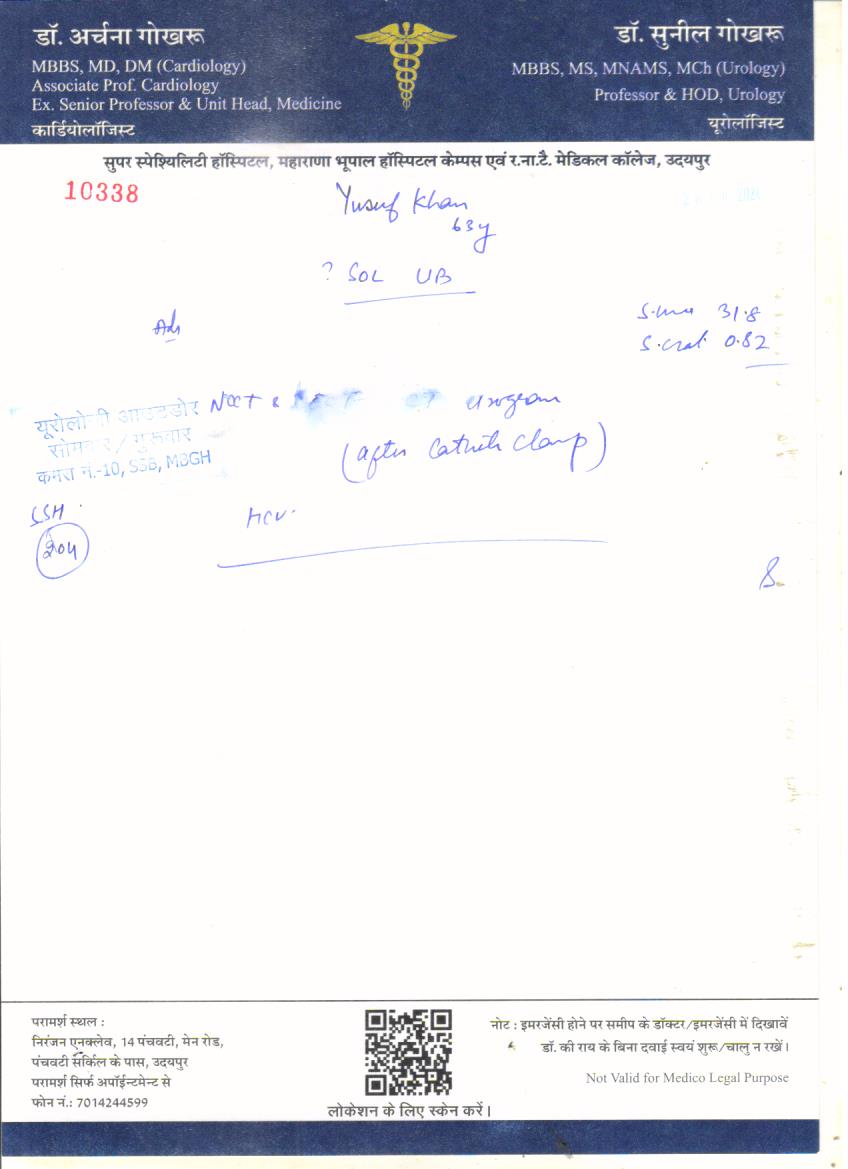 डॉ. अर्चना गोखरू
MBBS, MD, DM (Cardiology)
Associate Prof. Cardiology
Ex. Senior Professor & Unit Head, Medicine
कार्डियोलॉजिस्ट
डॉ. सुनील गोखरू
MBBS, MS, MNAMS, MCh (Urology)
Professor & HOD, Urology
यूरोलॉजिस्ट
सुपर स्पेश्यिलिटी हॉस्पिटल, महाराणा भूपाल हॉस्पिटल केम्पस एवं र.ना.टै. मेडिकल कॉलेज, उदयपुर
10338
Yusuf Khan
63y
? SOL UB
S. 31.8
S. creat 0.82
Adv
NCCT & CT urogram
(after Catheter Clamp)
यूरोलोजी आउटडोर
सोमवार / गुरूवार
कमरा नं.-10, SSB, MBGH
SSH
204
परामर्श स्थल :
निरंजन एनक्लेव, 14 पंचवटी, मेन रोड,
पंचवटी सर्किल के पास, उदयपुर
परामर्श सिर्फ अपॉईन्टमेन्ट से
फोन नं.: 7014244599
लोकेशन के लिए स्केन करें।
नोट : इमरजेंसी होने पर समीप के डॉक्टर/इमरजेंसी में दिखावें
डॉ. की राय के बिना दवाई स्वयं शुरू/चालु न रखें।
Not Valid for Medico Legal Purpose